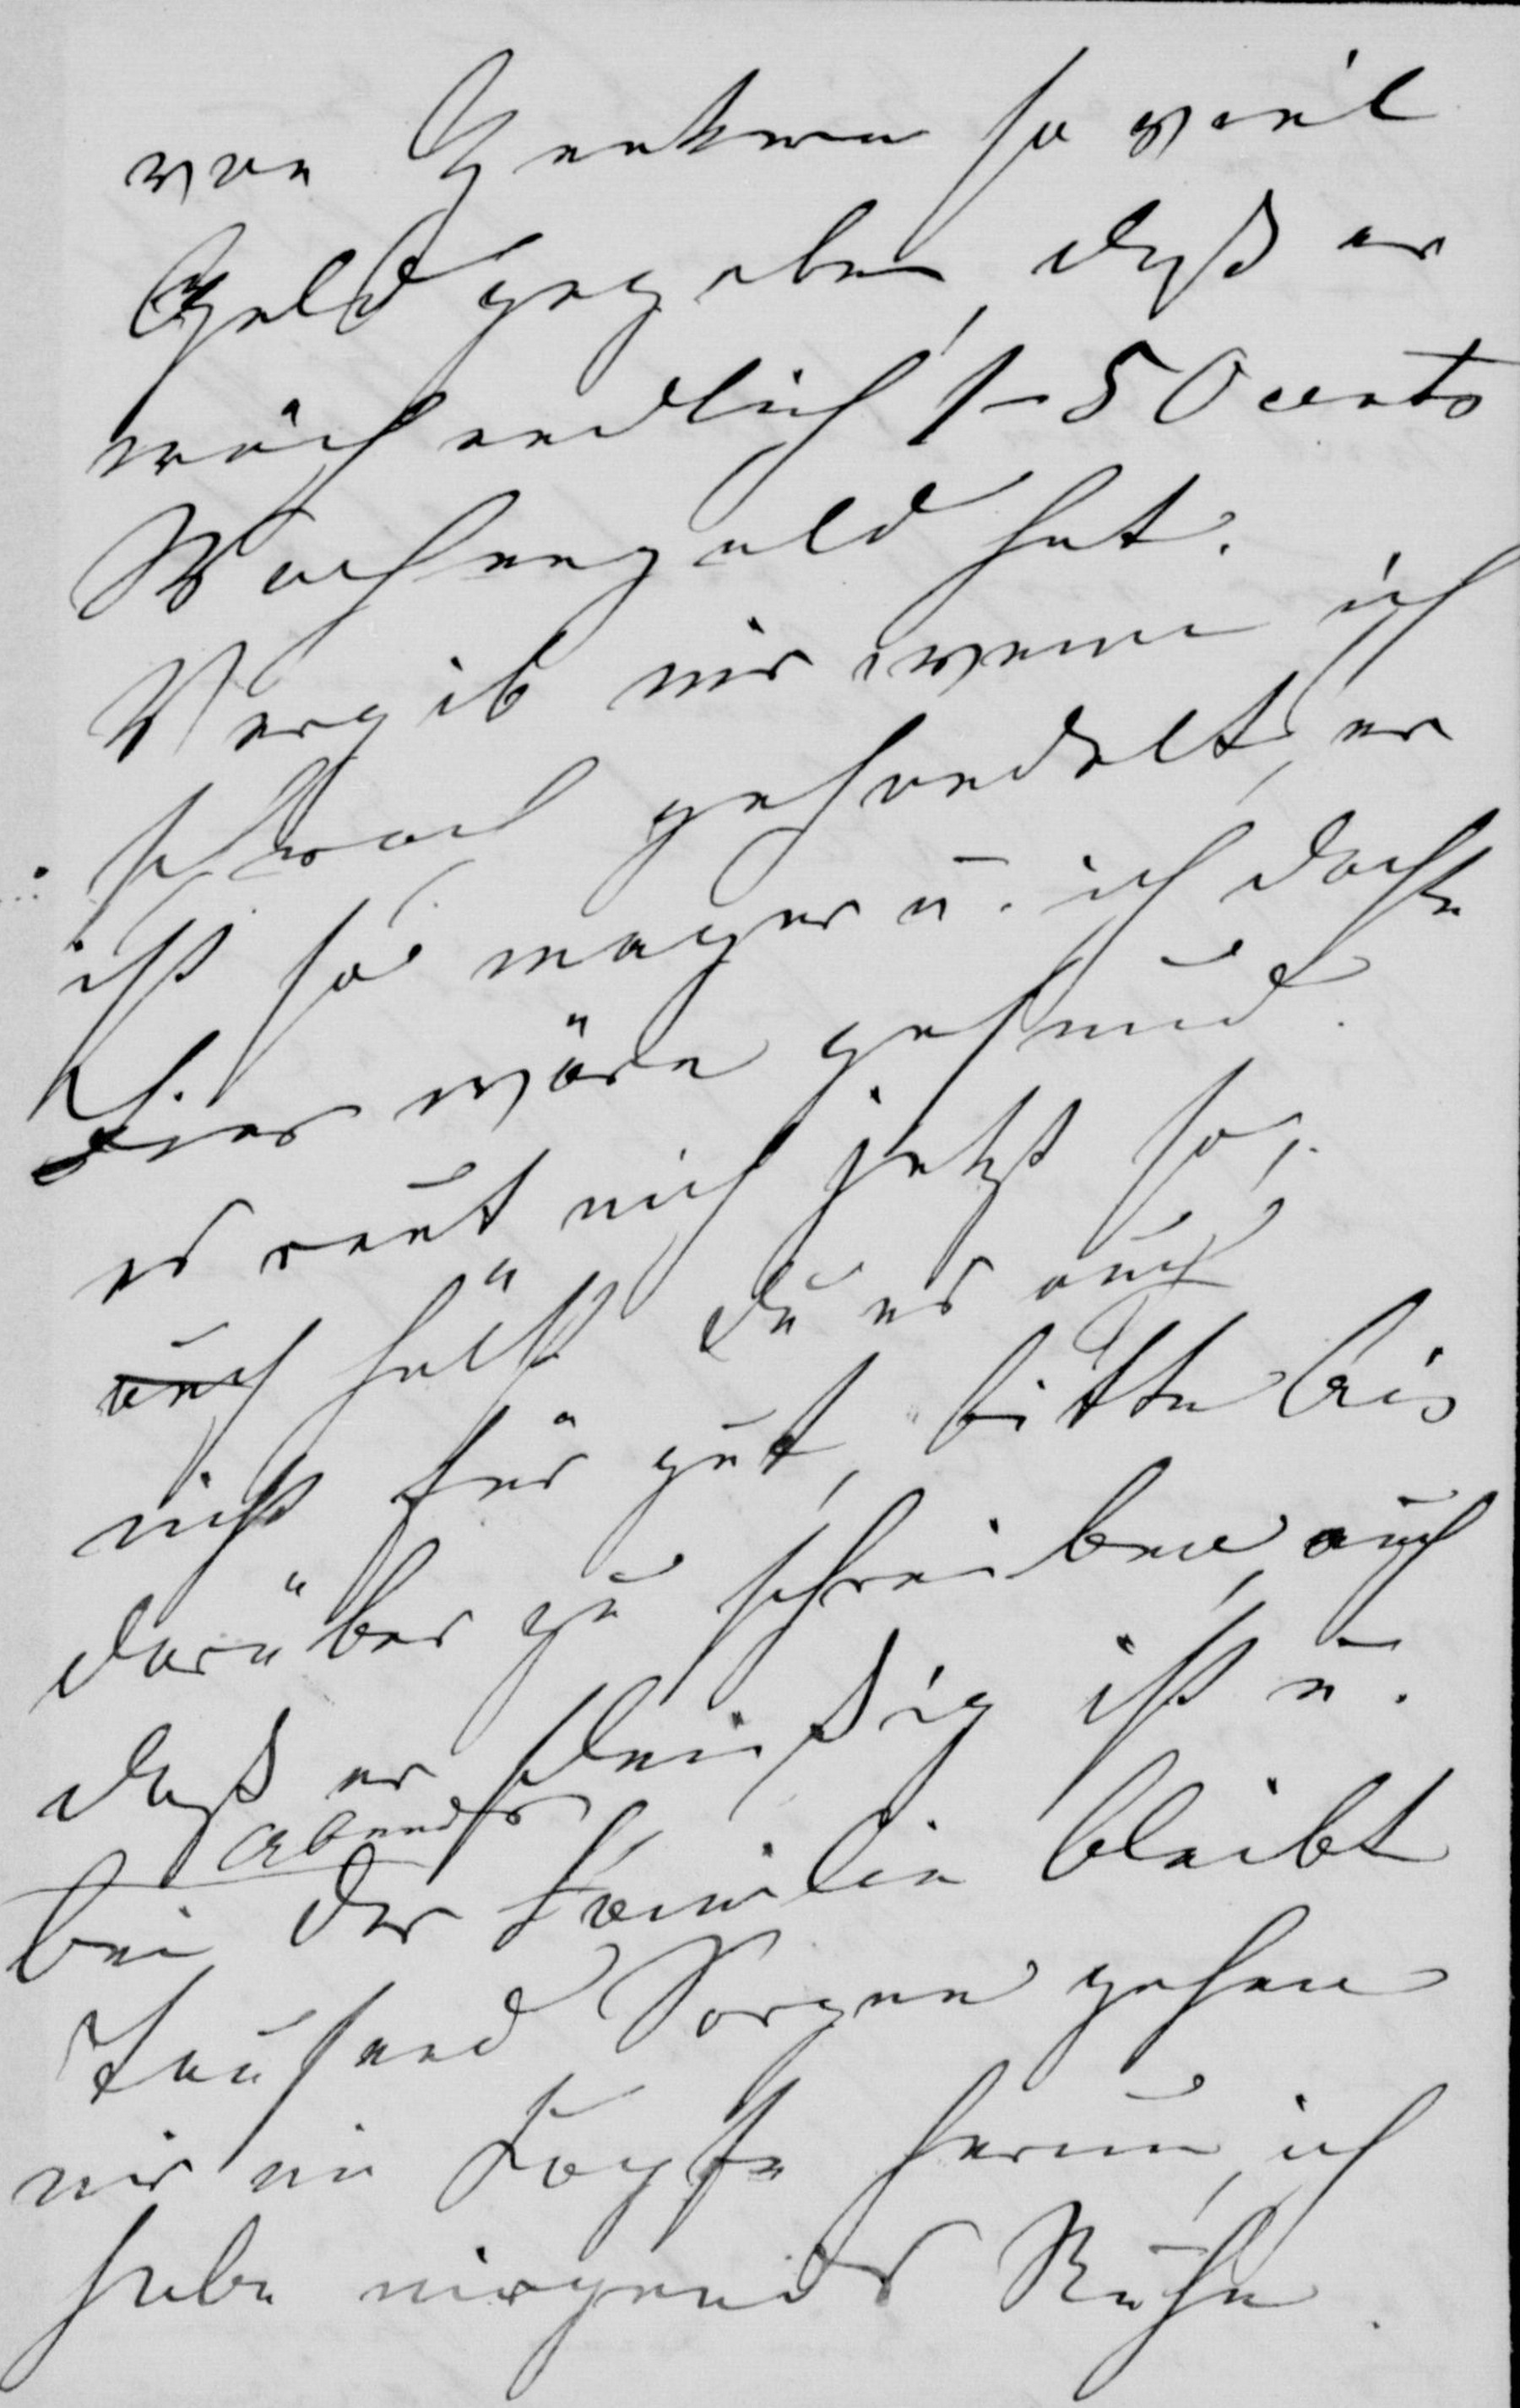 von so viel
Geld gegeben, daß er
wöchendlich 1-50 cents
Wochengeld hat.
Vergib mir wenn ich
schwach gehandelt, er
ist so mager u. ich dachte
Bier wäre gesund.
es reut mich jetzt so,
auch hälst Du es auch
nicht für gut, bitte Ais
darüber zu schreiben, auch
daß er fleißig ist u.
abends
bei der Familie bleibt
Tausend Sorgen gehen
mir im Kopfe herum, ich
habe nirgends Ruhe.